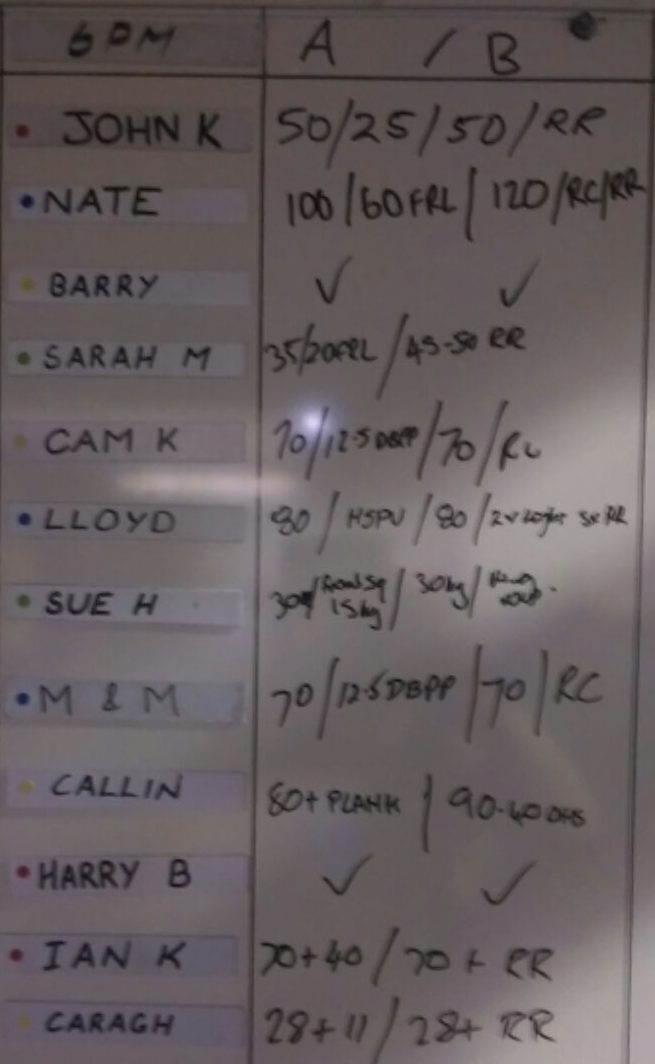 6PM A / B
JOHN K 50/25/50/RR
NATE 100/60FRL/120/RC/RR
BARRY ✓ ✓
SARAH M 35/20FRL/45-50 RR
CAM K 70/12.5 DBPP/70/RC
LLOYD 80/HSPU/80/2x 3x RR
SUE H 30/ 15kg/30kg/Ring
M & M 70/12.5DBPP/70/RC
CALLIN 80+PLANK/90-40 OHS
HARRY B ✓ ✓
IAN K 70+40/70+RR
CARAGH 28+11/28+ RR